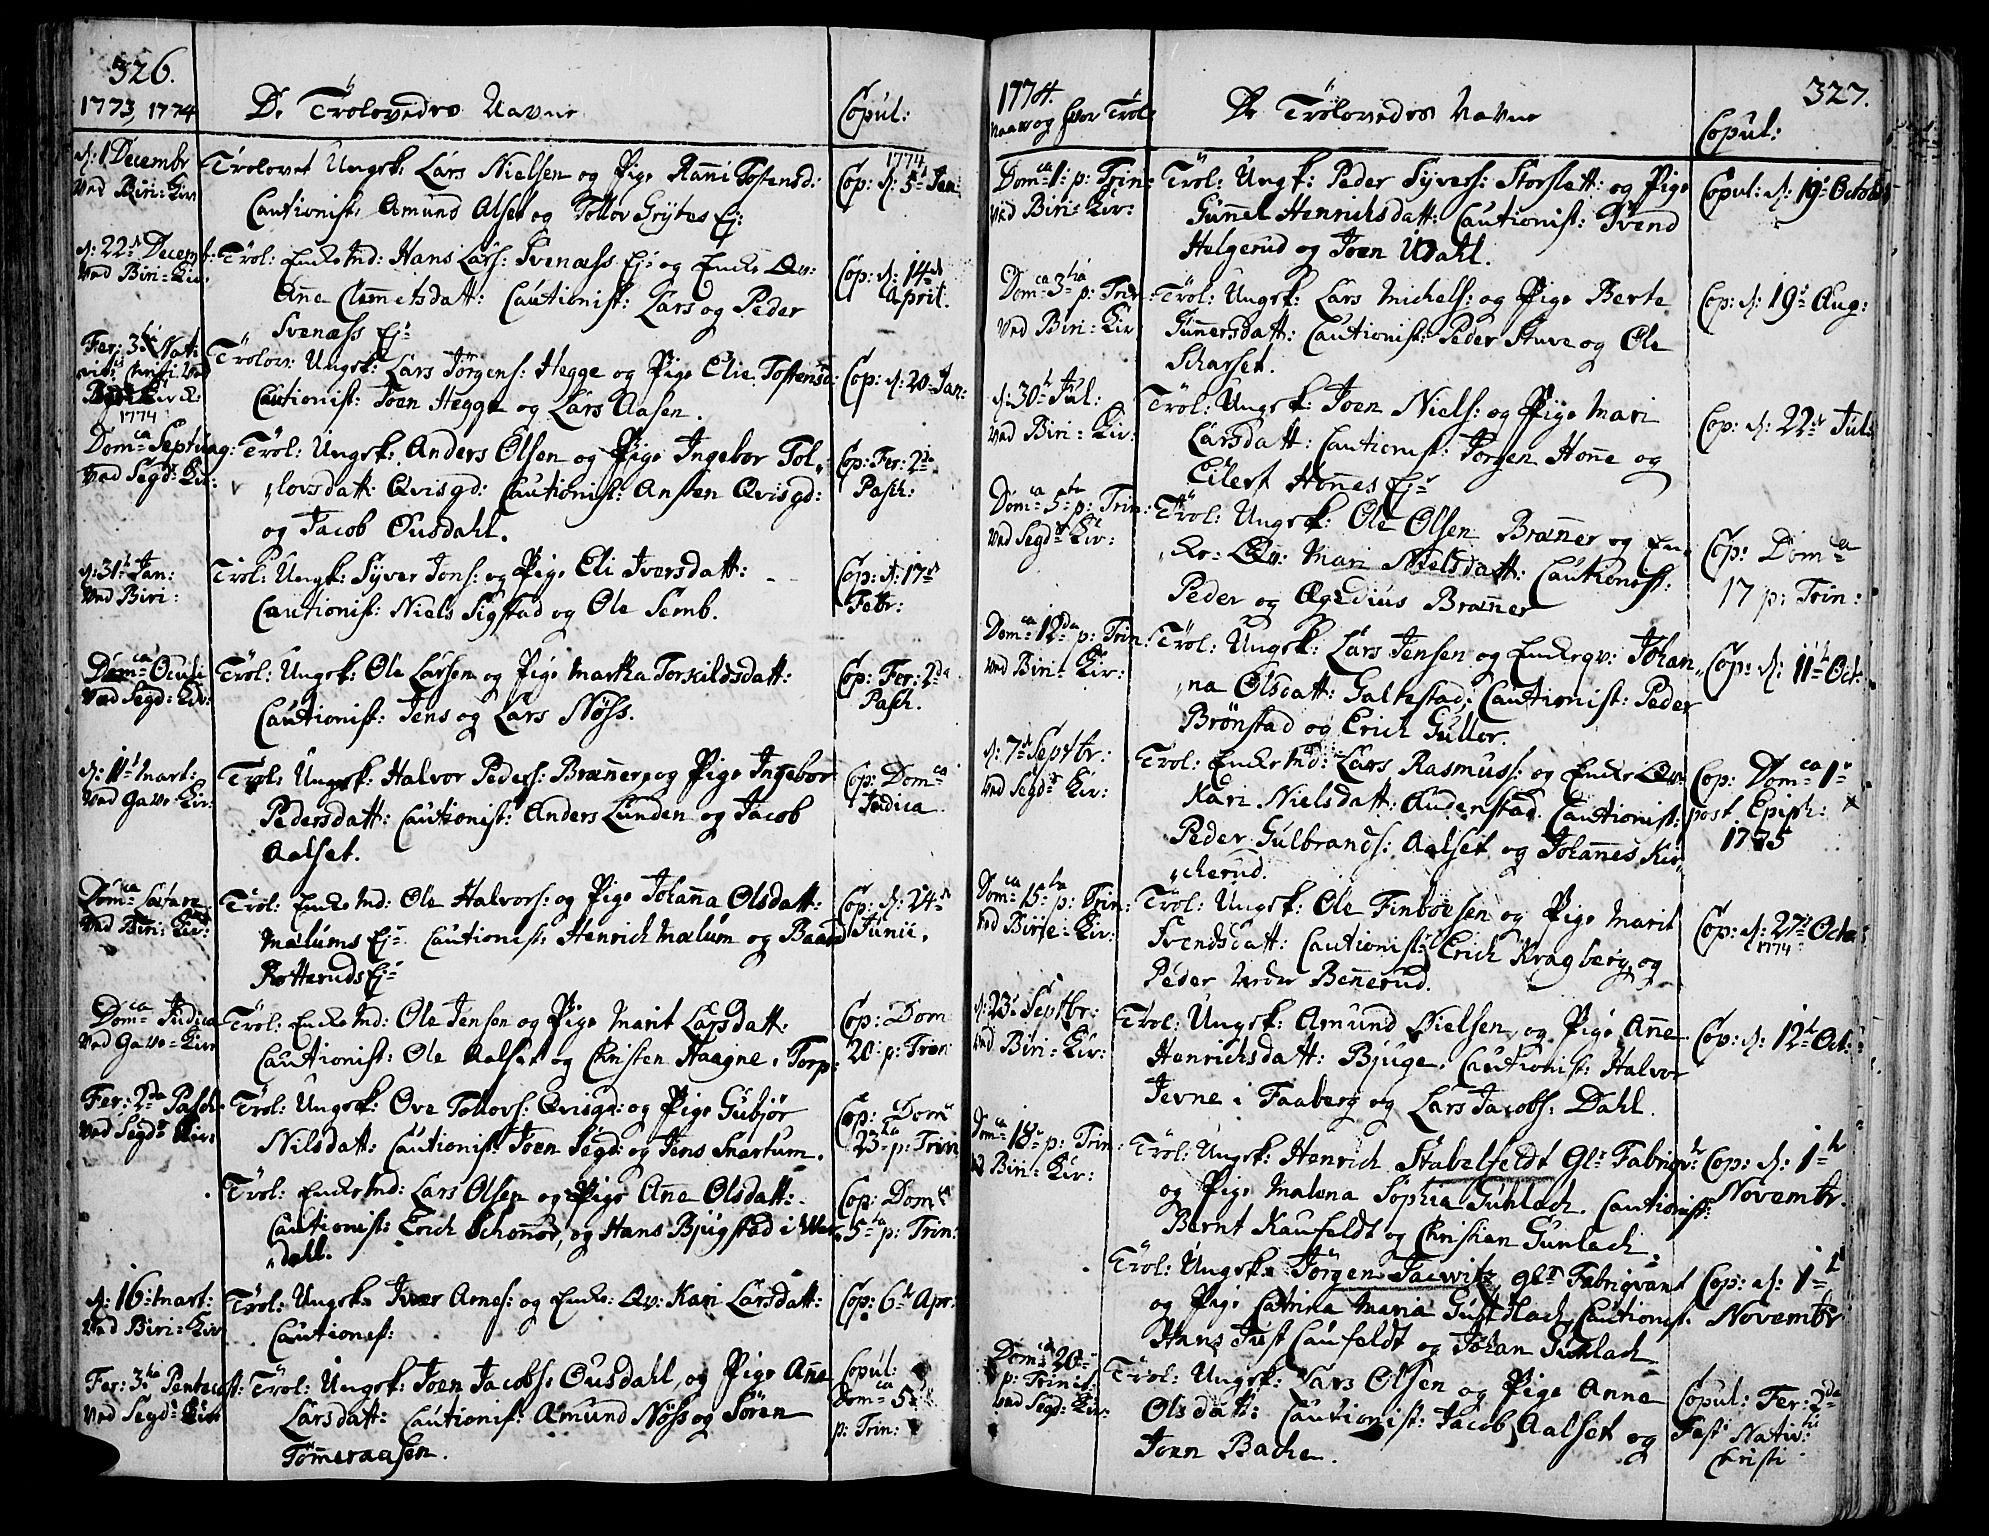 326.
1773, 1774
De Trolovedes Navne
Copul:
d: 1 Decembr
ved Biri: Kir:
Trolovet Ungsk: Lars Nielsen og Pige Anni Tostensd:
Cautionist: Amund Alset og Tollov Grÿtes Ej:
1774
Cop: d: 5t Jan
d: 22d Decemb:
ved Biri: Kir:
Tröl: Enke Md: Hans Lars: Svenæss Ej: og Enke Qv:
Añe Clemetsdatt: Cautionist: Lars og Peder
Svenæss Ej:
Cop: d: 14d
April.
Fer: 3tia Nati
vit: Christi ved
Kirk:
Trölov: Ungsk: Lars Jörgens: Hegge og Pige Elie Tostensd:
Cautionist: Joen Hegge og Lars Aasen.
Cop: d: 20 Jan:
1774
Domca Septuag:
ved Segd: Kir:
Tröl: Ungsk: Anders Olsen og Pige Ingebor Tol„
„lovsdatt: Qvisgd: Cautionist: Ansten Qvisgd:
og Jacob Ousdahl.
Cop: Fer: 2da
Pasch:
d: 31t Jan:
ved Biri:
Tröl: Ungk: Syver Jons: og Pige Eli Iversdatt:
Cautionist: Niels Sigstad og Ole Semb.
Cop: d: 17d
Febr:
Domca Oculi
ved Segd: Kir:
Tröl: Ungsk: Ole Larsen og Pige Martha Torkildsdatt:
Cautionist: Jens og Lars Nöss.
Cop: Fer: 2da
Pasch.
d: 11t Mart:
ved Gave: Kir:
Tröl: Ungsk: Halvor Peders: Bræñer, og Pige Ingebor
Pedersdatt: Cautionist: Anders Lunden og Jacob
Aalset.
Cop: Domca
Judica
Domca Lætare
ved Biri: Kir:
Tröl: Enke Md: Ole Halvors: og Pige Johaña Olsdatt:
Mælums Ej: Cautionist: Henrich Mælum og Baard
Rotteruds Ej:
Cop: d: 24d
Junii.
Domca Judica
ved Gave: Kir:
Tröl: Enke Md: Ole Jensen og Pige Marit Larsdatt:
Cautionist: Ole Aalset og Christen Haagne. Torp:
Cop: Dom
20 p: Trin
Fer: 2da Pasch:
ved Segd: Kir:
Tröl: Ungsk: Ove Tollovs: Qvisgd: og Pige Gubjör
Nilsdatt: Cautionist: Joen Segd: og Jens Snartum.
Cop: Dom
23tia p: Trin
Tröl: Enke Md: Lars Olsen og Pige Aña Olsdatt:
Cautionist: Erich Schoñor, og Hans Bjugstad i Var„
„dahl.
Cop: Domca
5ta p: Trin:
d: 16 Mart:
ved Biri: Kir:
Tröl: Ungsk: Iver Arnes: og Enke: Qv: Kari Larsdatt:
Cautionist:
Cop: 6t Apr:
Fer: 3tia Pentecost:
ved Segd: Kir:
Tröl: Ungsk: Joen Jacobs: Ousdahl, og Pige Aña
Larsdatt: Cautionist: Amund Nöss og Sören
Tömeraasen.
Copul:
Domca 5
p: Trin:
327.
1774.
naar og hvor Tröl:
De Trölovedes Navne
Copul:
Domca 1: p: Trin:
ved Biri: Kir:
Tröl: Ungk: Peder Syvers: Storslett: og Pige
Guñel Henrichsdatt: Cautionist: Svend
Helgerud og Joen Udahl.
Copul: d: 19t Octobr
Domca 3tia p: Trin:
ved Biri: Kir:
Tröl: Ungsk: Lars Michels: og Pige Berte
Guñersdatt: Cautionist: Peder Stuve og Ole
Scharset.
Cop: d: 19d Aug:
d: 30t Jul:
ved Biri: Kir:
Tröl: Ungsk: Joen Niels: og Pige Mari
Larsdatt: Cautionist: Jörgen Hoñe og
Eilert Hoñes Ej:
Cop: d: 22d Jul:
Domca 5ta p: Trin:
ved Segd: Kir:
Tröl: Ungsk: Ole Olsen Bræñer og En„
„ke-Qv: Mari Nielsdatt: Cautionist:
Peder og Ægedius Bræñer
Cop: Domca
17 p: Trin:
Domca 12da p: Trin:
ved Biri: Kir:
Tröl: Ungsk: Lars Jensen og Enkeqv: Johan„
„na Olsdatt: Galtestad; Cautionist: Peder
Brönstad og Erich Gullor.
Cop: d: 11t Oct:
d: 7d Septbr:
ved Segd: Kir:
Tröl: Enke Md: Lars Rasmuss: og Enke Qv:
Kari Nielsdatt: Audenstad. Cautionist:
Peder Gulbrands: Aalset og Johañes Kir„
„cherud.
Cop: Domca 1
post Epiph:
1775
Domca 15ta p: Trin:
ved Birie: Kir:
Tröl: Ungsk: Ole Finboesen og Pige Marit
Svendsdatt: Cautionist: Erich Kragberg, og
Peder Neder Beñerud.
Cop: d: 27d Octo:
1774
d: 23 Septbr:
ved Biri: Kir:
Tröl: Ungsk: Amund Nielsen, og Pige Añe
Henrichsdatt: Bjuge. Cautionist: Halvor
Jevne i Faaberg og Lars Jacobs: Dahl.
Cop: d: 12t Oct:
Domca 18 p: Trin:
ved Biri: Kir:
Tröl: Ungsk: Henrich Stabelfeldt Gl: Fabriqv:
og Pige Malena Sophia Gunlach. Cautionist:
Bernt Kaufeldt og Christian Gunlach.
Cop: d: 1t
Novembr.
Tröl: Ungsk: Jörgen Jacwitz, gl: Fabriqvant
og Pige Catrina Maria Cautionist:
Hans Just Caufeldt og Johan Gunlach
Cop: d: 1t
Novembr
Domca 20
p: Trinit:
ved Segd: Kir:
Tröl: Ungsk: Lars Olsen og Pige Anne
Olsdatt: Cautionist: Jacob Aalset og
Joen Bache.
Copul: Fer: 2da
Fest Nativ:
Christi